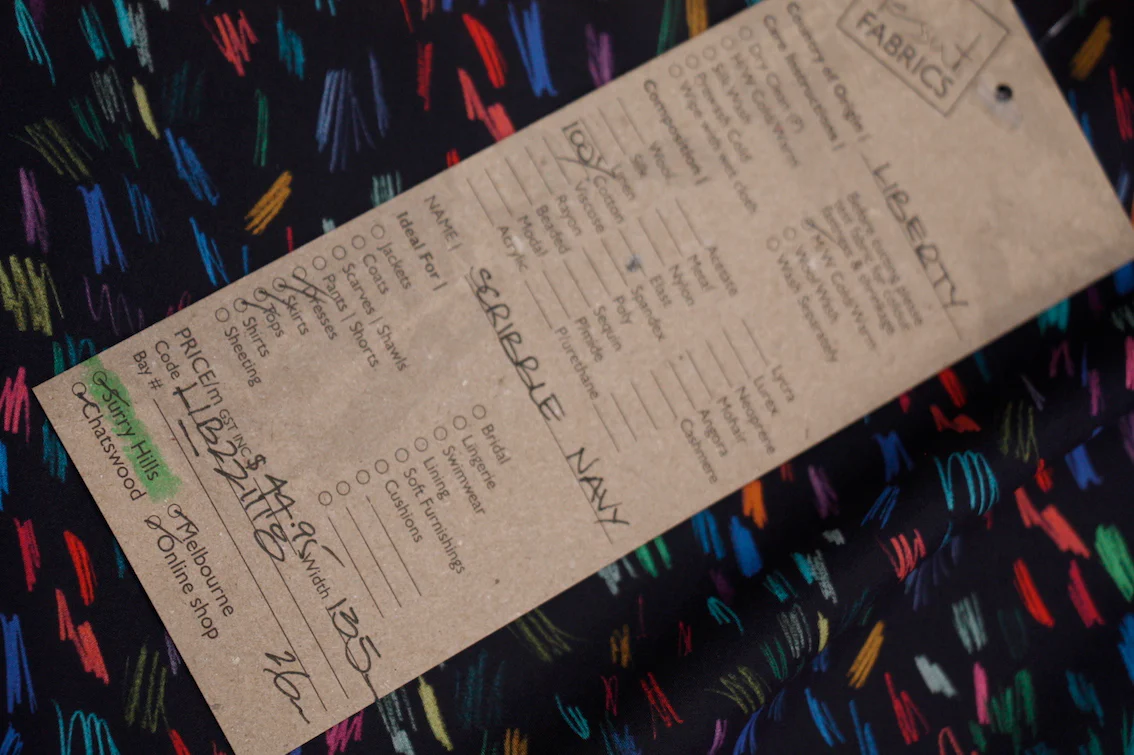 FABRICS
Country of Origin | LIBERTY
Care Instructions |
Dry Clean (P)
H/W Cold/Warm
Silk Wash
Prewash Cold
Wipe with wet cloth
Before cutting please
test fabric for colour
fastness & shrinkage
M/W Cold/Warm
Wool Wash
Wash Separately
Composition |
Wool
Silk
Linen
100% Cotton
Viscose
Rayon
Beaded
Modal
Acrylic
Acetate
Metal
Nylon
Elast
Spandex
Poly
Sequin
P/imide
P/urethane
Lycra
Lurex
Neoprene
Mohair
Angora
Cashmere
NAME | SCRIBBLE NAVY
Ideal For |
Jackets
Coats
Scarves | Shawls
Pants | Shorts
Dresses
Skirts
Tops
Shirts
Sheeting
Bridal
Lingerie
Swimwear
Lining
Soft Furnishings
Cushions
PRICE/m GST INC $ 44.95 Width 135
Code LIB22111g
Bay # 26
Surry Hills
Chatswood
Melbourne
Online shop